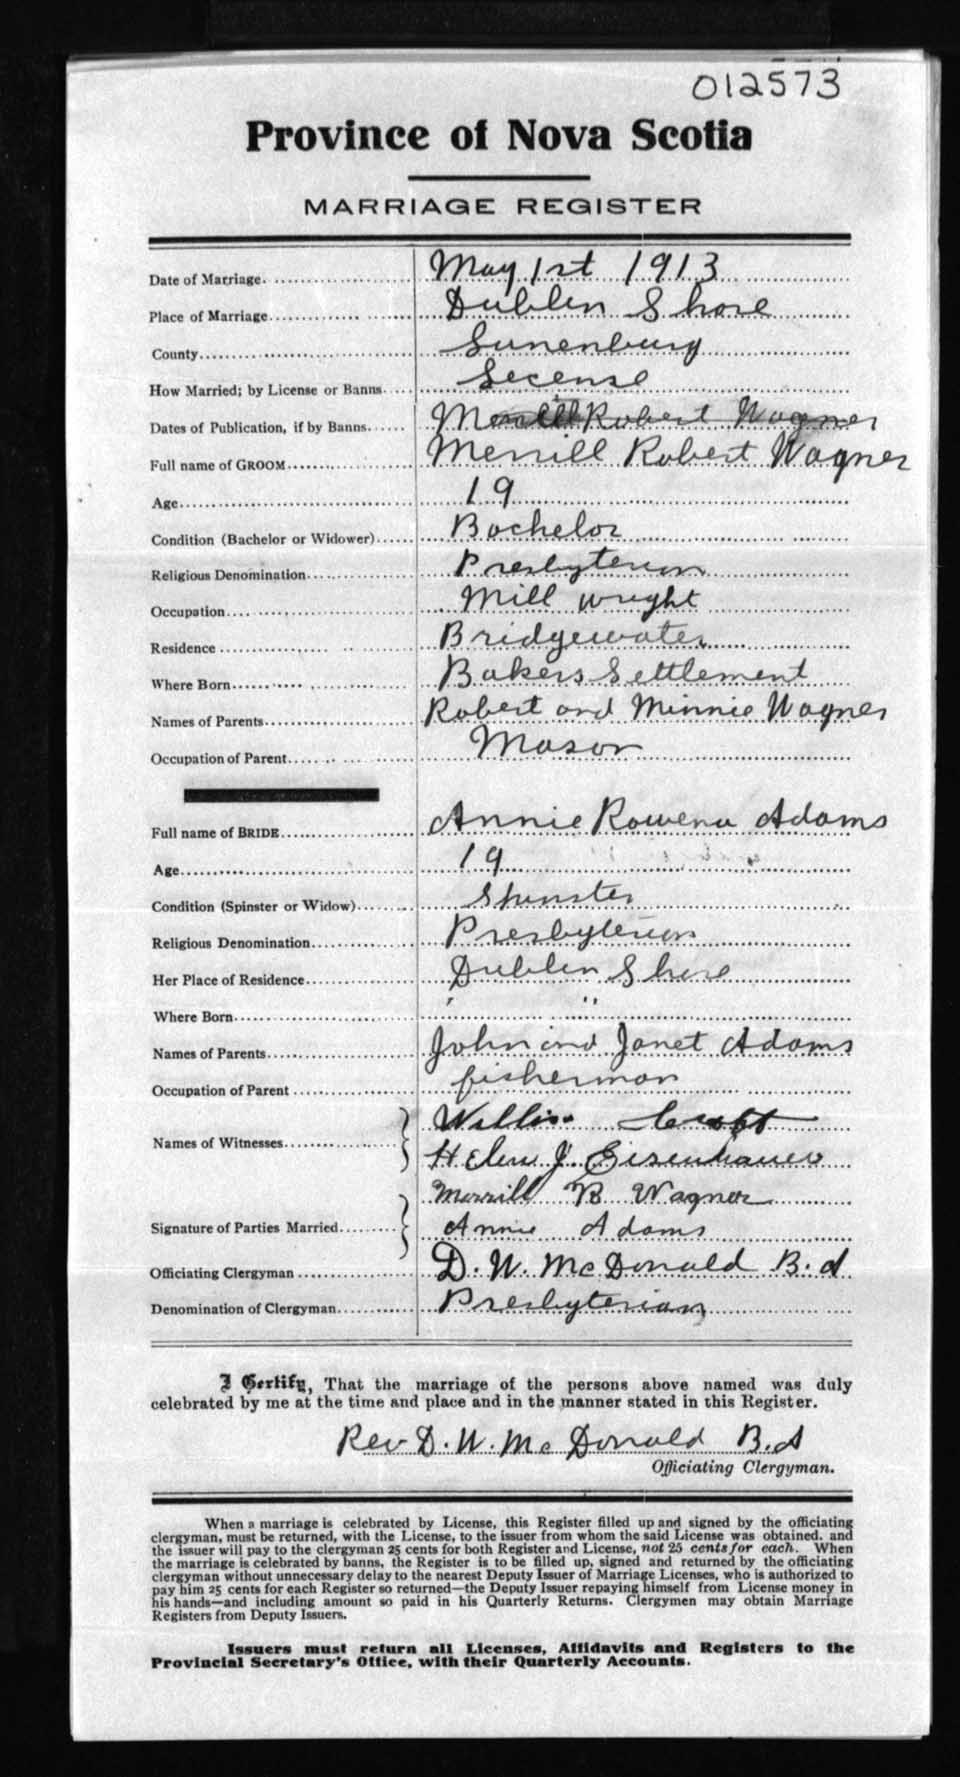 012573
Province of Nova Scotia
MARRIAGE REGISTER
Date of Marriage. May 1st 1913
Place of Marriage Dublin Shore
County Lunenburg
How Married; by License or Banns Lecense
Dates of Publication, if by Banns Robert Wagner
Full name of GROOM Merrill Robert Wagner
Age 19
Condition (Bachelor or Widower) Bachelor
Religious Denomination Presbyterian
Occupation Mill wright
Residence Bridgewater
Where Born Bakers Settlement
Names of Parents Robert and Minnie Wagner
Occupation of Parent Mason
Full name of BRIDE Annie Rowena Adams
Age 19
Condition (Spinster or Widow) Spinster
Religious Denomination Presbyterian
Her Place of Residence Dublin Shore
Where Born " "
Names of Parents John and Janet Adams
Occupation of Parent fisherman
Willis
Names of Witnesses
Helen J. Eisenhauer
Merrill R Wagner
Signature of Parties Married
Annie Adams
Officiating Clergyman D. W. McDonald B.A
Denomination of Clergyman Presbyterian
I Certify, That the marriage of the persons above named was duly
celebrated by me at the time and place and in the manner stated in this Register.
Rev D. W. McDonald B.A
Officiating Clergyman.
When a marriage is celebrated by License, this Register filled up and signed by the officiating
clergyman, must be returned, with the License, to the issuer from whom the said License was obtained. and
the issuer will pay to the clergyman 25 cents for both Register and License, not 25 cents for each. When
the marriage is celebrated by banns, the Register is to be filled up, signed and returned by the officiating
clergyman without unnecessary delay to the nearest Deputy Issuer of Marriage Licenses, who is authorized to
pay him 25 cents for each Register so returned—the Deputy Issuer repaying himself from License money in
his hands—and including amount so paid in his Quarterly Returns. Clergymen may obtain Marriage
Registers from Deputy Issuers.
Issuers must return all Licenses, Affidavits and Registers to the
Provincial Secretary's Office, with their Quarterly Accounts.